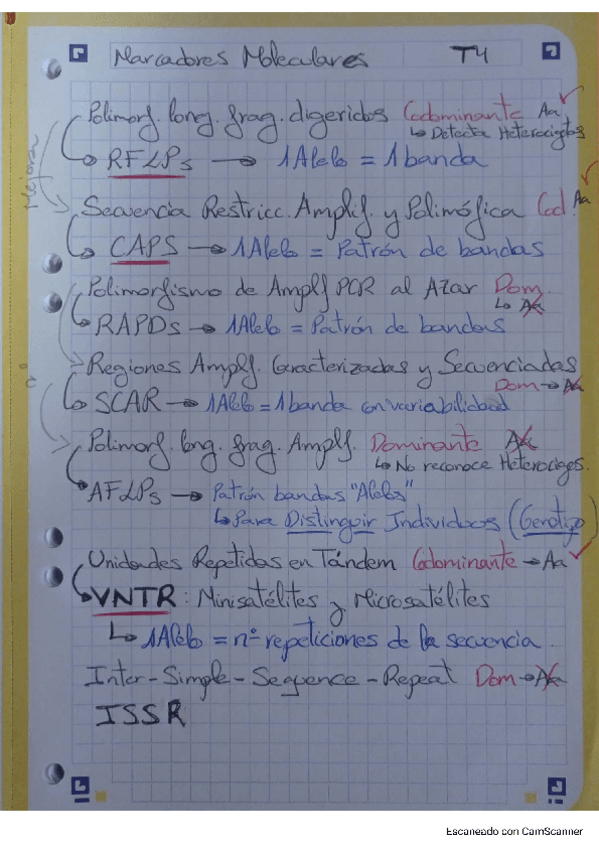 Marcadores Moleculares T4
Polimorf. long. frag. digeridos Codominante Aa
↳ Detecta Heterocigotos
RFLPs → 1Alelo = 1banda
Mejora
Secuencia Restricc. Amplif. y Polimófica Cod Aa
CAPS → 1Alelo = Patrón de bandas
Polimorfismo de Amplf PCR al Azar Dom.
↳ Aa
RAPDs → 1Alelo = Patrón de bandas
Regiones Amplf. Caracterizadas y Secuenciadas
Dom → Aa
SCAR → 1Alelo = 1banda con variabilidad
Polimorf. long. frag. Amplf. Dominante Aa
↳ No reconoce Heterocigos.
AFLPs → Patrón bandas "Alelos"
↳ Para Distinguir Individuos (Genotipo)
Unidades Repetidas en Tándem Codominante → Aa
VNTR: Minisatélites y Microsatélites
↳ 1Alelo = nº repeticiones de la secuencia
Inter-Simple-Sequence-Repeat Dom → Aa
ISSR
Escaneado con CamScanner